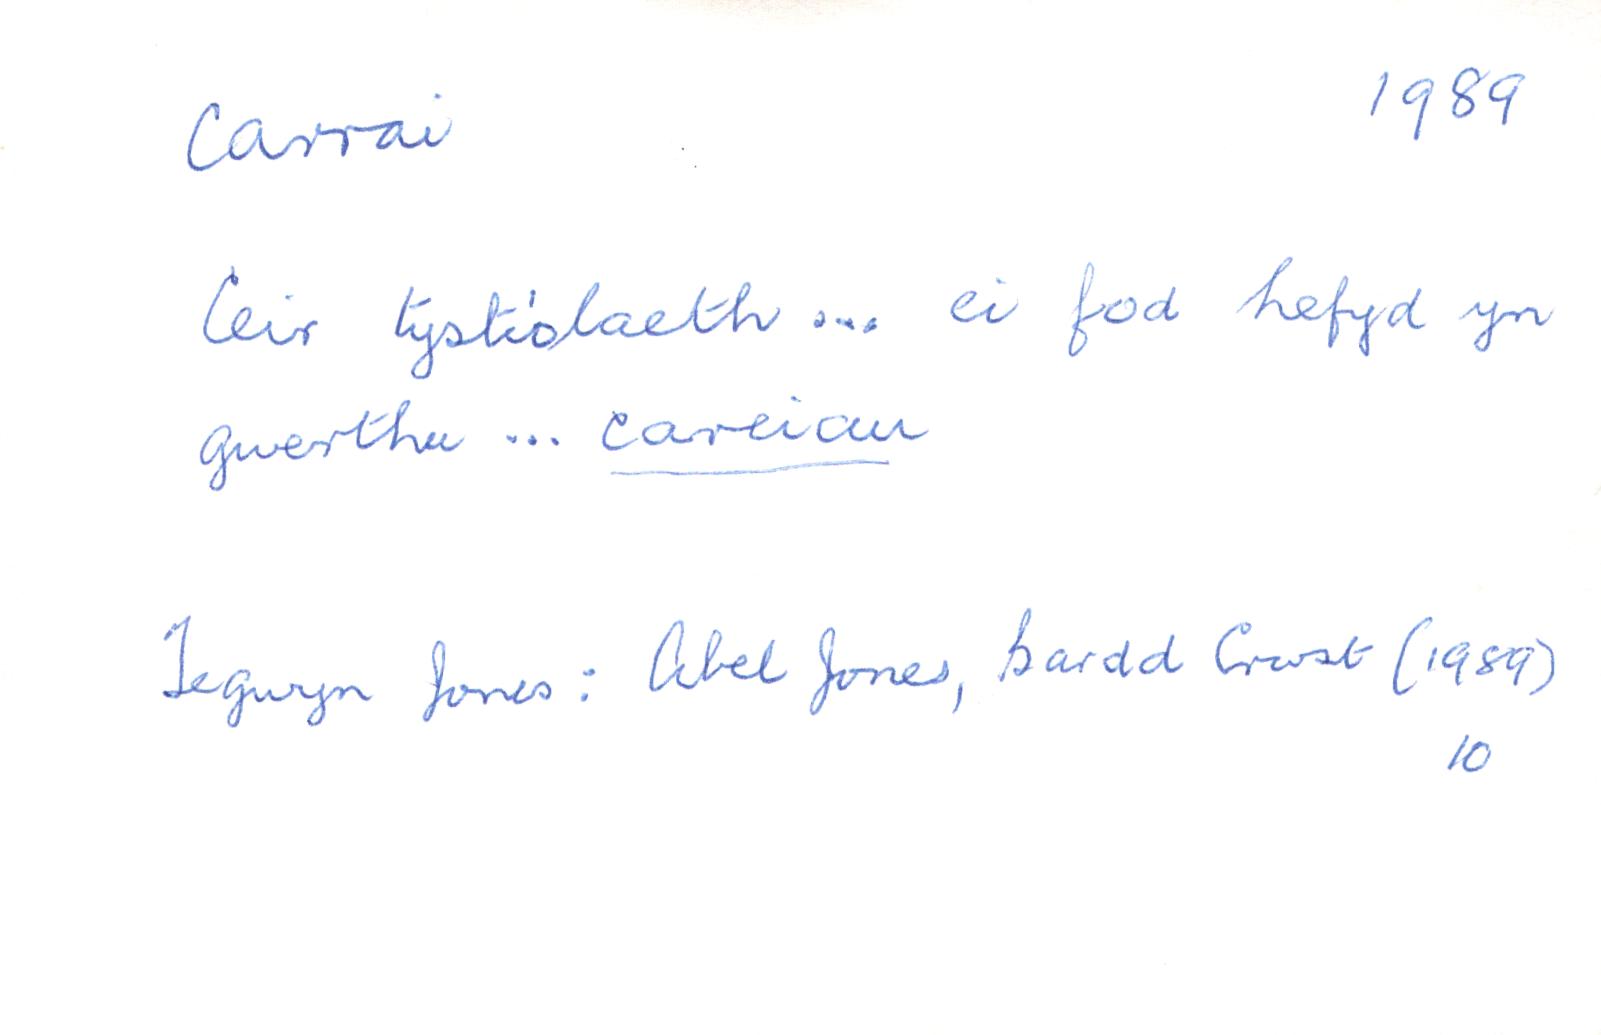 Carrai 1989
Ceir tystiolaeth ... ei fod hefyd yn
gwerthu ... careiau
Tegwyn Jones: Abel Jones, Bardd Crwst (1989)
10